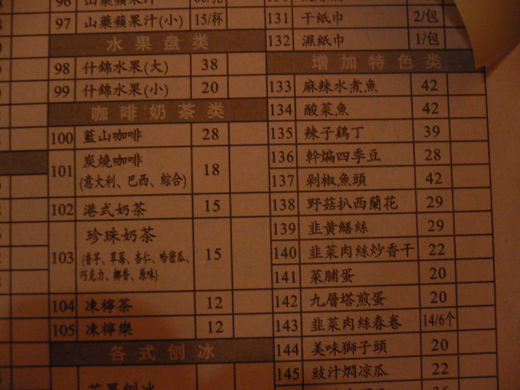 山藥蘋果汁
97 山藥蘋果汁(小) 15/杯
水果盘类
98 什錦水果(大) 38
99 什錦水果(小) 20
咖啡奶茶类
100 藍山咖啡 28
101 炭燒咖啡 18
(意大利、巴西、綜合)
102 港式奶茶 15
103 珍珠奶茶 15
(香芋、草莓、杏仁、哈密瓜、
巧克力、椰香、原味)
104 凍檸茶 12
105 凍檸樂 12
各式刨冰
131 干紙巾 2/包
132 濕紙巾 1/包
增加特色类
133 麻辣水煮魚 42
134 酸菜魚 42
135 辣子鷄丁 39
136 幹煸四季豆 28
137 剁椒魚頭 42
138 野菇扒西蘭花 29
139 韭黄鱔絲 29
140 韭菜肉絲炒香干 22
141 菜脯蛋 20
142 九層塔煎蛋 20
143 韭菜肉絲春卷 14/6个
144 美味獅子頭 20
145 豉汁燜凉瓜 22